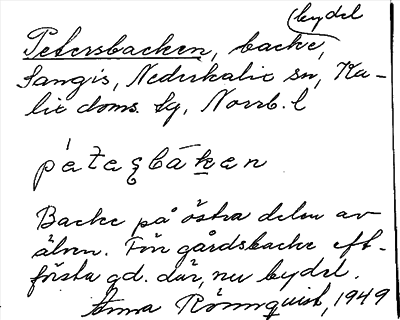 (bydel
Petersbacken, backe,
Sangis, Nederkalix sn, Ka-
lix doms. lg, Norrb. l
pétaʂbàḵen
Backe på östra delen av
älven. Förr gårdsbacke eft.
första gd. där, nu bydel.
Anna Rönnquist, 1949